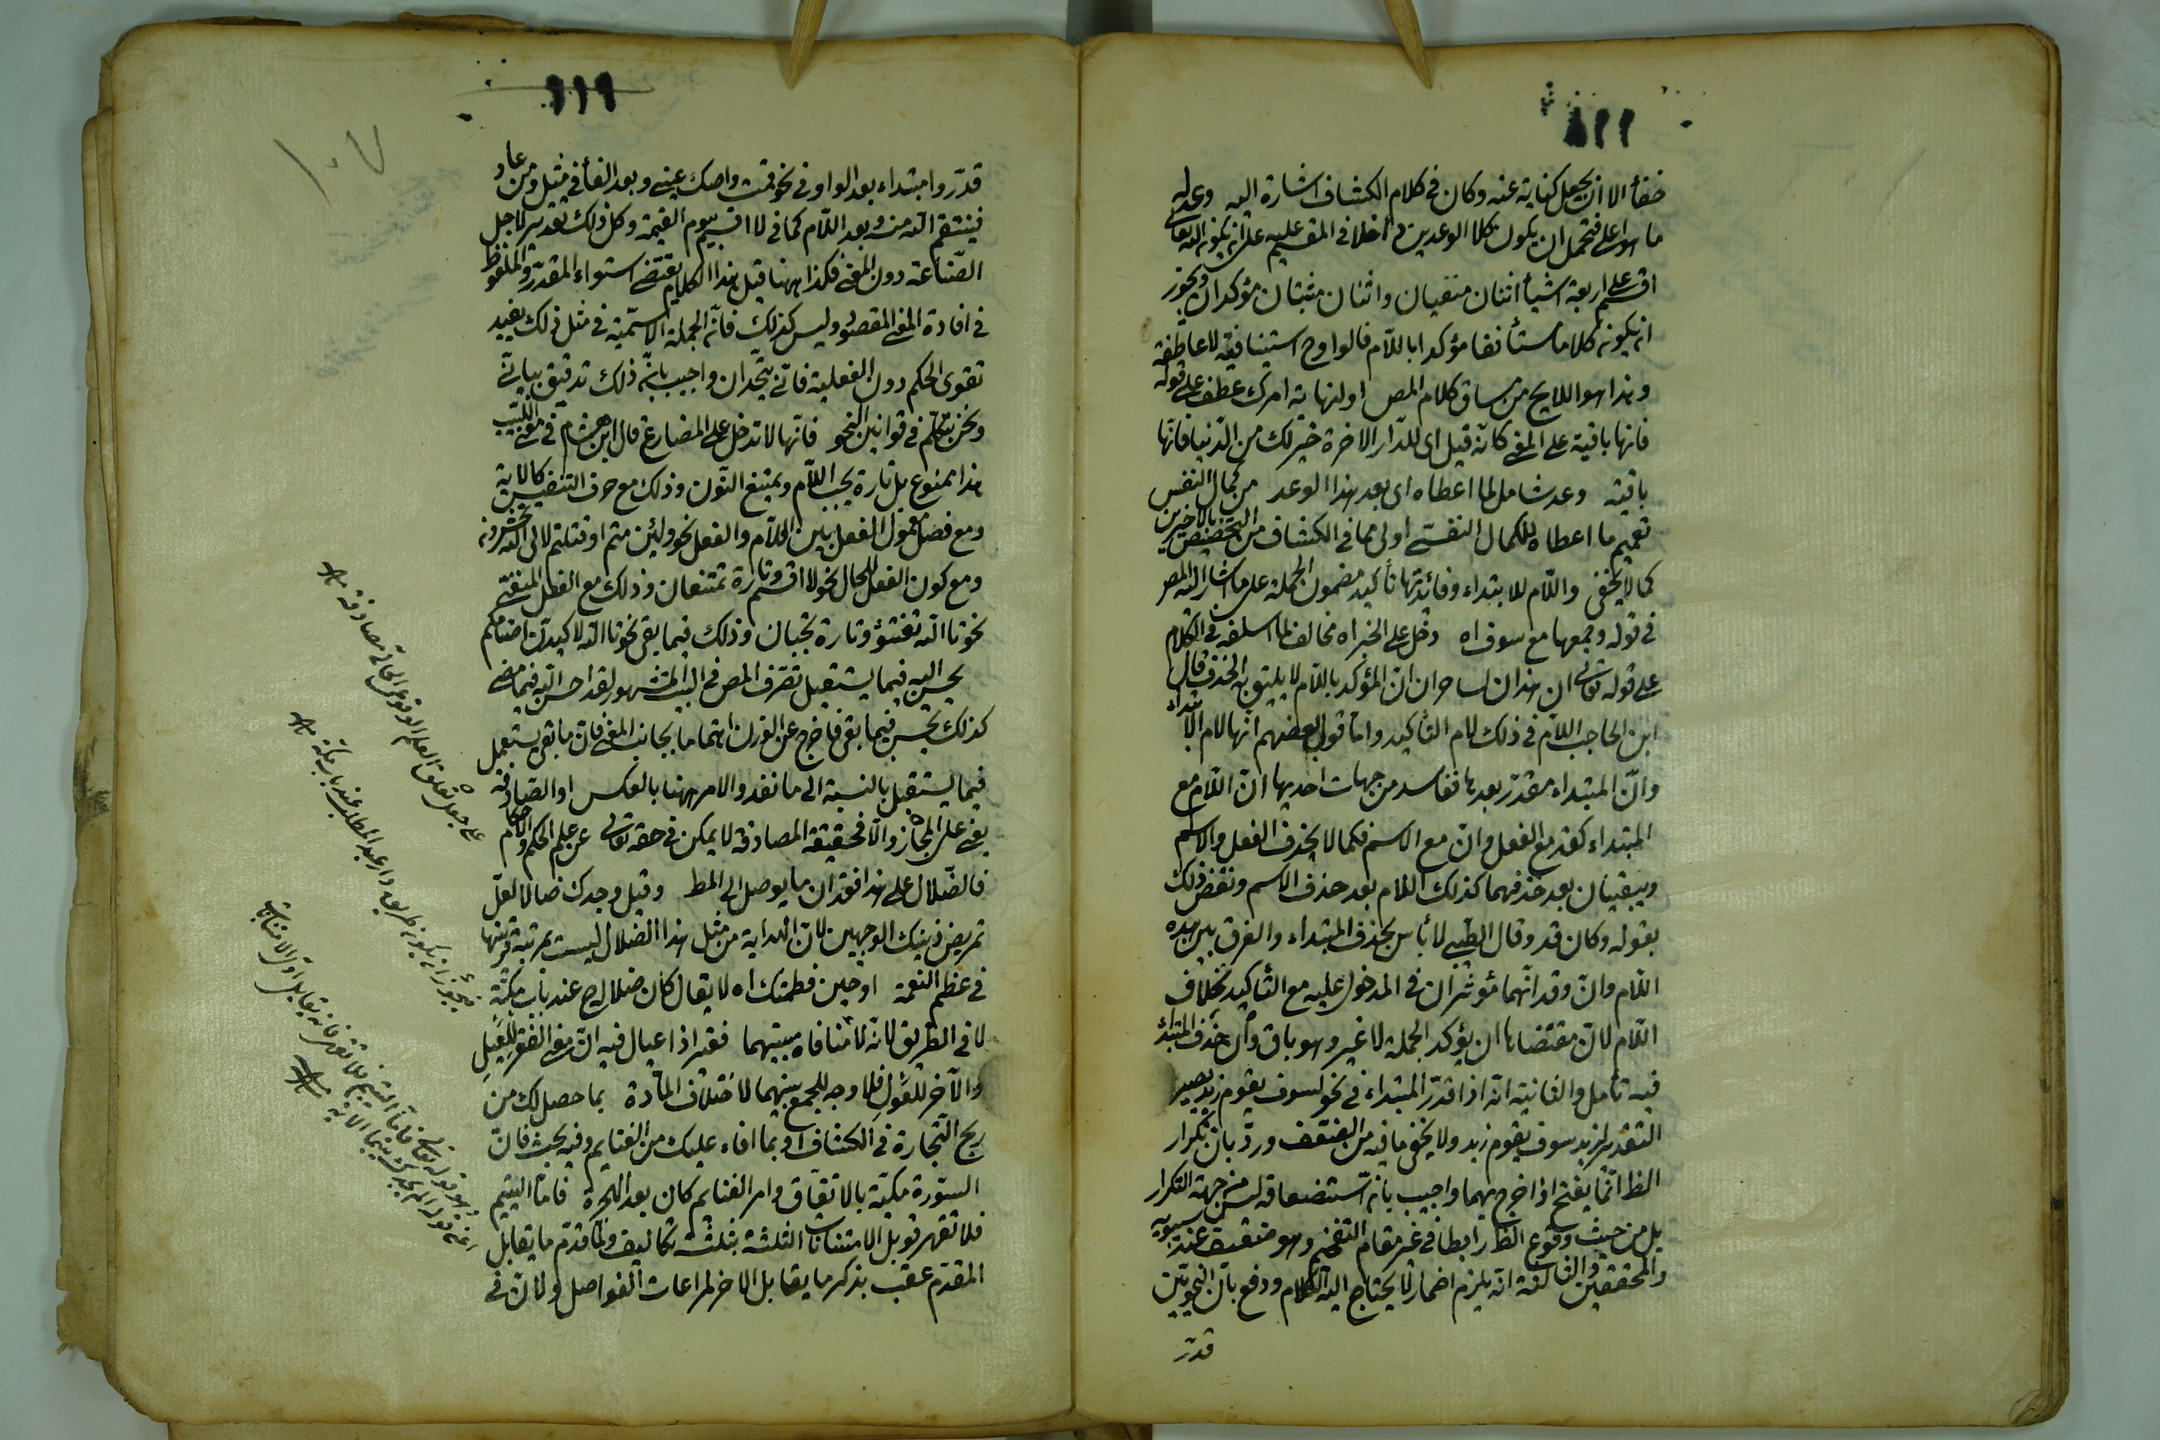 خفاء الا ان يجعل كناية عنه وكان في كلام الكشاف اشارة اليه وعدله
ما هو اعلى فتحمل ان يكون كلا الوعدين داخلا في المقسم عليه على ان يكون الله تعالى
اقسم على اربعة اشياء اثنان منفيان واثنان مثبتان مؤكدان ويجوز
ان يكون كلاما مستأنفا مؤكدا باللام فالواو ح استينافية لا عاطفة
وهذا هو اللايح من مساق كلام المص او لنهاية امرك عطف على قوله
فانها باقية على المعنى كانه قيل اى للدار الاخرة خير لك من الدنيا فانها
باقية وعد شامل لما اعطاه اى بعد هذا الوعد من كمال النفس
تعميم ما اعطاه للكمال النفسى اولى مما في الكشاف من التخصيص بالاخيرين
كما لا يخفى واللام للابتداء وفائدتها تأكيد مضمون الجملة على ما اشار اليه المص
في قوله وجمعها مع سوف اه دخل على الخبر اه مخالف لما اسلفه في الكلام
على قوله تعالى ان هذان لساحران ان المؤكد باللام لا يليق به الحذف قال
ابن الحاجب اللام في ذلك لام التأكيد واما قول بعضهم انها لام الابتداء
وانّ المبتداء مقدر بعدها ففاسد من جهات احديها ان اللام مع
المبتداء كقد مع الفعل وان مع الاسم فكما لا يحذف الفعل والاسم
ويبقيان بعد حذفهما كذلك اللام بعد حذف الاسم ونقض ذلك
بقوله وكان قد وقال الطيبى لا بأس بحذف المبتداء والفرق بين هذه
اللام وان وقد انهما مؤثران في المدخول عليه مع التأكيد بخلاف
اللام لان مقتضاها ان يؤكد الجملة لا غير وهو باق وان حذف المبتدأ
فيه تأمل والثانية انه اذا قدر المبتداء في نحو لسوف يقوم زيد يصير
التقدير لزيد سوف يقوم زيد ولا يخفى ما فيه من الضعف وردّ بان تكرار
الظ انما يقبح اذا خرج بهما واجيب بانه استضعافه ليس من جهة التكرار
بل من حيث وقوع الظ رابطا في غير مقام التفخيم وهو ضعيف عند سيبويه
والمحققين والثالثة انه يلزم اضمار لا يحتاج اليه الكلام ودفع بان النحويين
قدّر
١١٩
١٠٧
قدّروا مبتداء بعد الواو في نحو قمت واصك عينه وبعد الفاء في مثل ومن عاد
فينتقم الله منه وبعد اللام كما في لا اقسم بيوم القيمة وكل ذلك تقدير لاجل
الصناعة دون المعنى فكذا ههنا قيل هذا الكلام يقتضى استواء المقدر والملفوظ
في افادة المعنى المقصود وليس كذلك فانّ الجملة الاسمية في مثل ذلك يفيد
تقوى الحكم دون الفعلية فانى يتحدان واجيب بانّ ذلك تدقيق بيانى
ونحن نتكلم في قوانين النحو فانها لا تدخل على المضارع قال ابن هشام في مغنى اللبيب
هذا ممنوع بل تارة يجب اللام ويمتنع النون وذلك مع حرف التنفيس كالاية
ومع فصل معمول الفعل بين اللام والفعل نحو ولئن متم او قتلتم لالى الله تحشرون
ومع كون الفعل للحال نحو لا اقسم وتارة تمتنعان وذلك مع الفعل المنفى
نحو تا الله تفتؤ وتارة تجبان وذلك فيما بقى نحو تا الله لاكيدن اصنامكم
يحسن اليه فيما يستقبل تصرف المص في البيت المشهور لقد احسن اليه فيما مضى
كذلك يحسن فيما بقى فاخرج عن الوزن اهتماما بجانب المعنى فان ما بقى يستعمل
فيما يستقبل بالنسبة الى ما نفد والامر ههنا بالعكس او المصادفة
يعنى على المجاز والا فحقيقة المصادفة لا يمكن في حقه تعالى عن علم الحكم والاحكام
فالضلال على هذا فقدان ما يوصل الى المط وقيل وجدك ضالا لعل
تمريض ذينك الوجهين لانّ الهداية من مثل هذا الضلال ليست بمرتبة قرينها
في عظم النعمة او حين فطمتك اه لا يقال كان ضلال ح عند باب مكة
لا في الطريق لانه لا منافاة بينهما فقيرا ذا عيال فيه ان معنى الفقر للعيل
والآخر للعول فلا وجه للجمع بينهما لاختلاف المادة بما حصل لك من
ربح التجارة في الكشاف او بما افاء عليك من الغنايم وفيه بحث فان
السورة مكية بالاتفاق وامر الغنايم كان بعد الهجرة فاما اليتيم
فلا تقهر قوبل الامتنانات الثلثة بثلثة تكاليف ولما قدم ما يقابل
المقدم عقب بذكر ما يقابل الاخر لمراعات الفواصل ولان في
على جعل تعلق العلم الوقوعى الحالى مصادفة
فيجوز ان يكون طريق دار عبد المطلب عند باب مكة
وهو قوله تعالى فاما اليتيم فلا تقهر فانه يقابل اول الامتنانات
اعنى قوله الم يجدك يتيما الآية